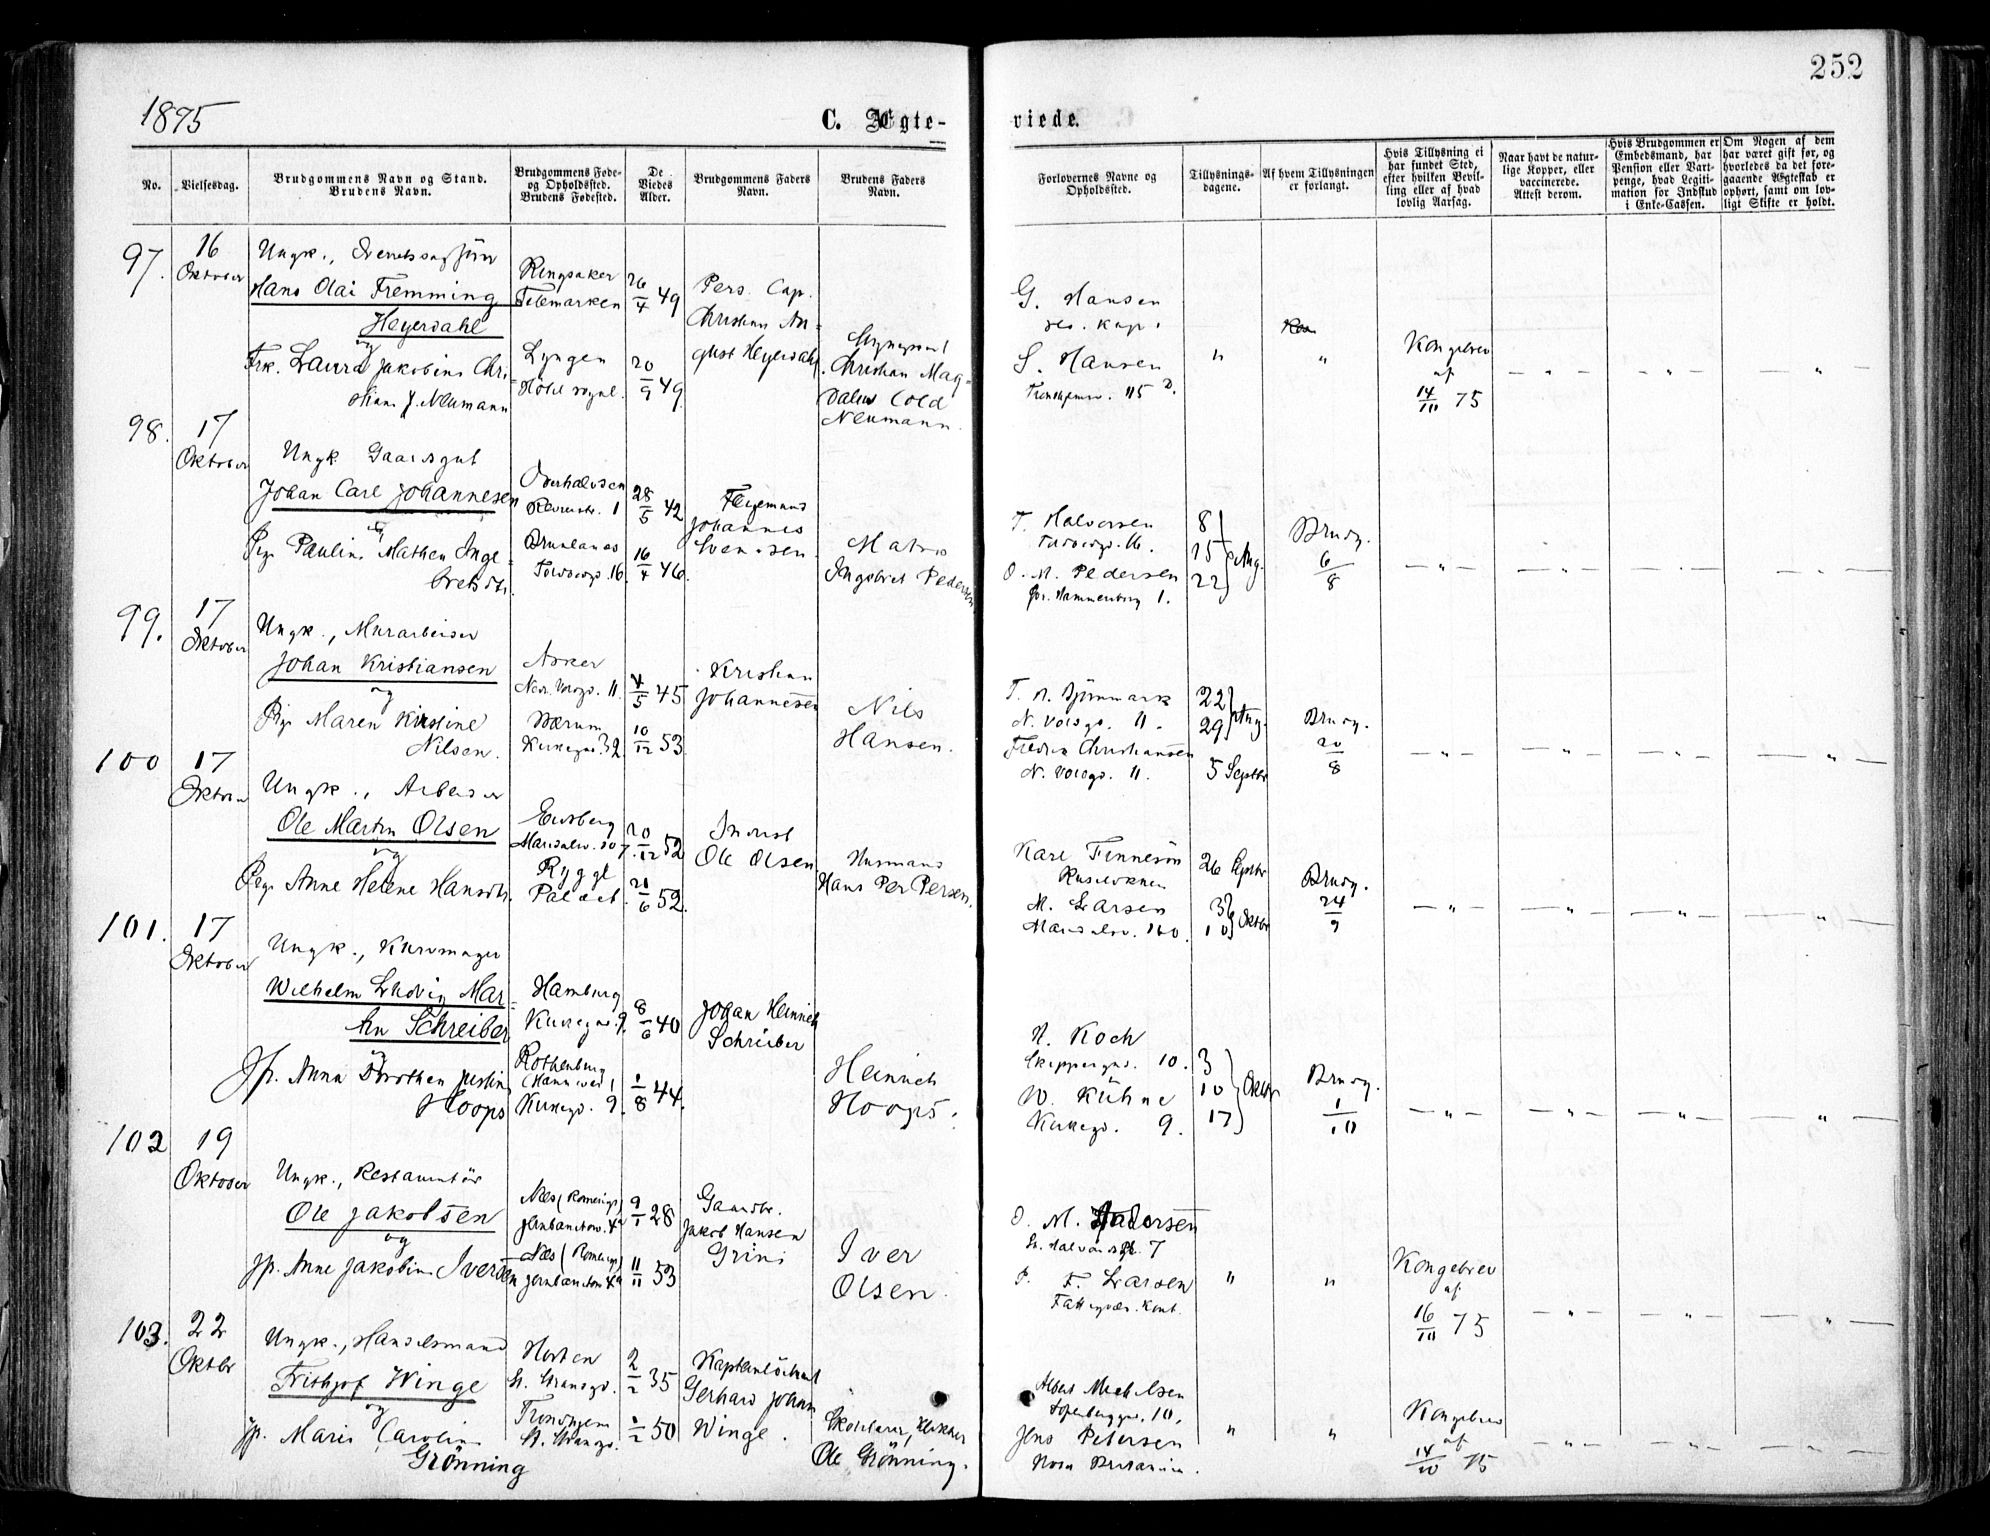 252
1875
C. Ægte-
viede.
No.
Vielsesdag.
Brudgommens Navn og Stand.
Brudens Navn.
Brudgommens Føde-
og Opholdssted.
Brudens Fødested.
De
Viedes
Alder.
Brudgommens Faders
Navn.
Brudens Faders
Navn.
Forlovernes Navne og
Opholdssted.
Tillysnings-
dagene.
Af hvem Tillysningen
er forlangt.
Hvis Tillysning ei
har fundet Sted,
efter hvilken Bevil-
ling eller af hvad
lovlig Aarsag.
Naar havt de natur-
lige Kopper, eller
vaccinerede.
Attest derom.
Hvis Brudgommen er
Embedsmand, har
Pension eller Vart-
penge, hvad Legiti-
mation for Indskud
i Enke-Cassen.
Om Nogen af dem
har været gift før, og
hvorledes da det fore-
gaaende Ægteskab er
ophørt, samt om lov-
ligt Skifte er holdt.
97.
16
Oktober
Ungk.,
Hans Olai Fremming
Heyerdahl
og
Frk. Laura Jakobine Chri-
stiane J. Neumann
Ringsaker
Telemarken
26/4 49
Lyngen
20/9 49.
Pers. Cap.
Christian Au-
gust Heyerdahl
Christian Mag-
dalus Cold
Neumann.
G. Hansen
res. kap.
S. Hansen
" "
Kongebrev
af
14/10 75
— " — — " — — " — — " —
98.
17
Oktober
Ungk. Gaardsgut
Johan Carl Johannesen
og
Pige Pauline Mathea Inge-
bretsdtr.
Overhalvden
28/5 42
Brunlanes
16.
16/4 46.
Johannes
Svendsen.
Matros
Ingebret Pedersen
T. Halvorsen
O. M. Pedersen
Hammersborg 1.
8
15
22
Aug.
Brudg.
6/8
— " — — " — — " — — " —
99.
17
Oktober
Ungk., Murarbeider
Johan Kristiansen
og
Pige Maren Kirstine
Nilsen.
Asker
Ned. Voldgd. 11.
4/5 45
Bærum
Kirkegd. 32.
10/12 53.
Kristian
Johannesen
Nils
Hansen.
T. A. Bjönmark
N. Voldgd. 11.
Fredrik Christiansen
N. Voldgd. 11.
22
29
Aug.
5 Septbr
Brudg.
20/8
— " — — " — — " — — " —
100
17
Oktober
Ungk., Arbeider
Ole Martin Olsen
og
Pige Anne Helene Hansdtr.
Eidsberg
20/12 52
Rygge
21/6 52.
Inderst
Ole Olsen
Husmand
Hans Per Persen.
Karl Finnesön
M. Larsen
Maridalsv. 160.
26 Septbr
3
10
Oktbr
Brudg.
24/9
— " — — " — — " — — " —
101.
17
Oktober
Ungk., Kurvmager
Wilhelm Ludvig Mar-
tin Schreiber
og
Jfr. Anna Dorothea Justine
Hoops
Hamburg
Kirkegd. 9.
8/6 40
Rothenburg
Kirkegd. 9.
1/8 44.
Johan Heinrich
Schreiber
Heinrich
Hoops.
H. Koch
Skippergd. 10.
W. Kühne
Kirkegd. 9.
3
10
17
Oktbr
Brudg.
1/10
— " — — " — — " — — " —
102
19
Oktober
Ungk., Restauratör
Ole Jakobsen
og
Jfr. Anne Jakobine Iversen
Næs (Romerige)
Jernbanetorv. 4a
9/1 28
Næs (Romerige)
Jernbanetorv 4a
11/11 53
Gaardbr.
Jakob Hansen
Grini
Iver
Olsen.
O. M. Andersen
St. Halvards Pl. 7
P. F. Larsen
Fattigvæs. Kont.
" "
Kongebrev
af
16/10 75
— " — — " — — " —
103.
22
Oktbr
Ungk., Handelsmand
Frithjof Winge
og
Jfr. Marie Caroline
Grönning
Horten
St. Strandgd.
2/2 35
Trondhjem
St. Strandgd.
1/2 50
Kaptenlöitnant
Gerhard Johan
Winge.
Skolelærer, Klokker
Ole Grönning.
Albert Michelsen
Tofenberggd. 10.
Jens Petersen
" "
Kongebrev
af
14/10 75
— " — — " — — " —